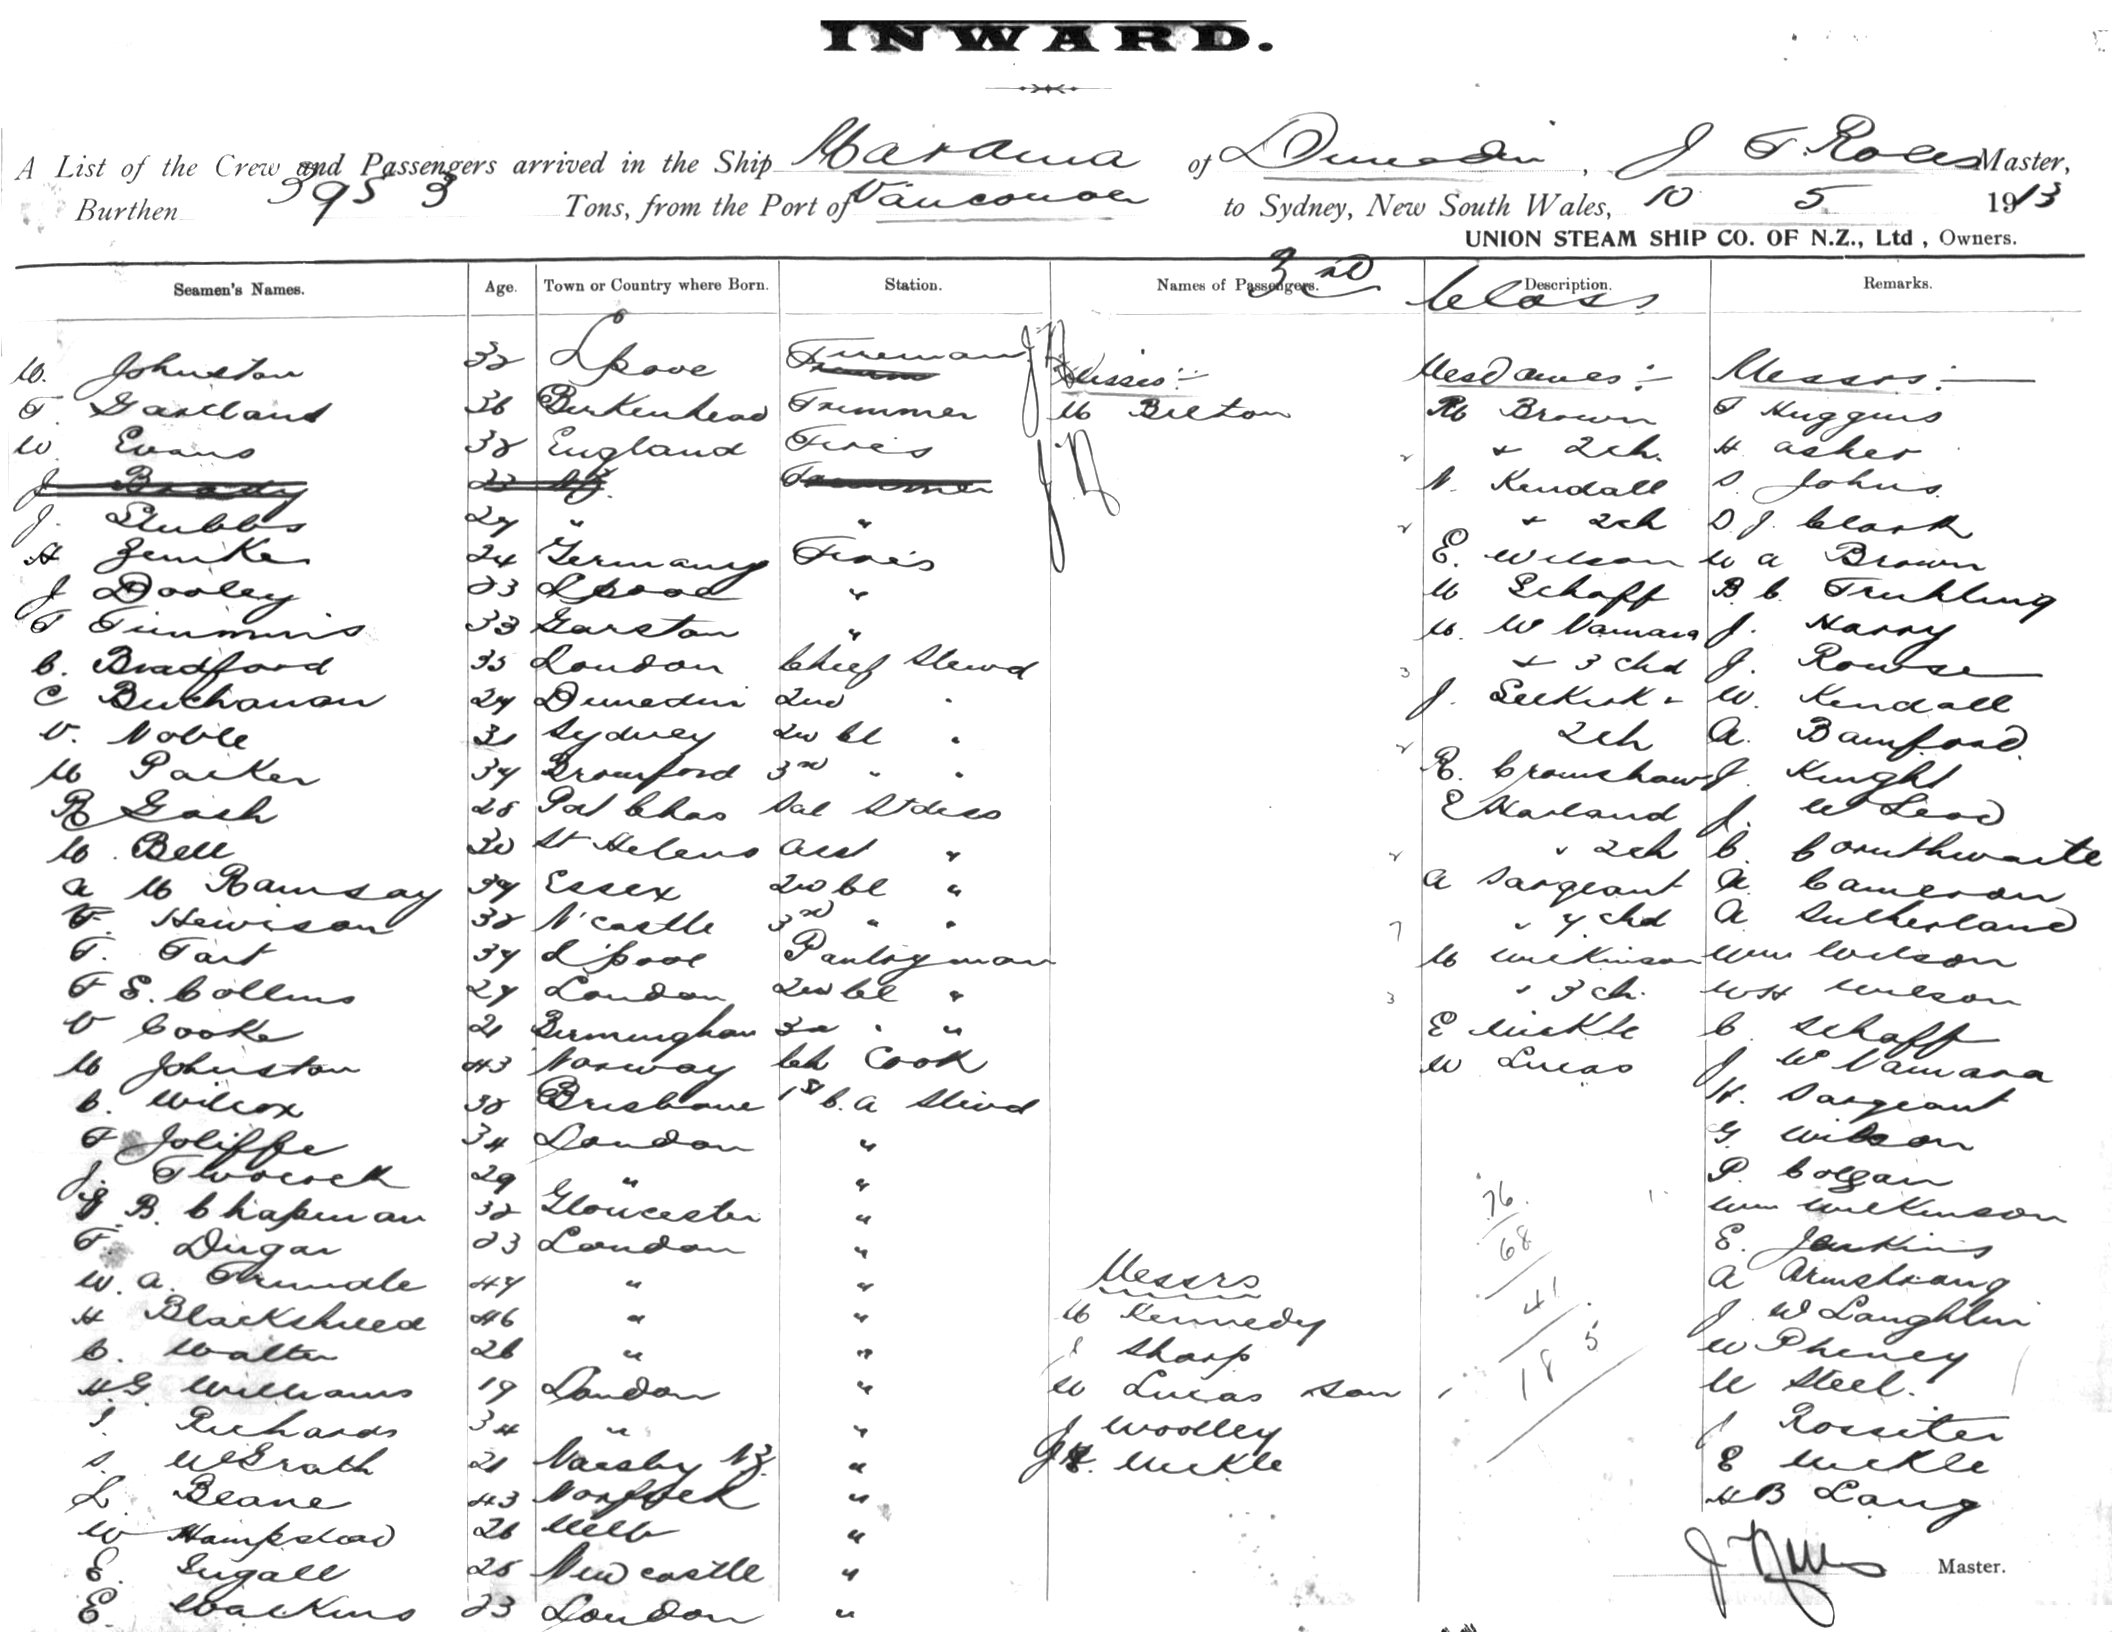 INWARD.
A List of the Crew and Passengers arrived in the Ship Marama of Dunedin, J T. Rolls Master,
Burthen 3953 Tons, from the Port of Vancouver to Sydney, New South Wales, 10 5 1913
UNION STEAM SHIP CO. OF N.Z., Ltd, Owners.
Seamen's Names. Age. Town or Country where Born. Station. Names of Passengers. Description. Remarks.
3rd Class
W. Johnston 32 Lpool Fireman Misses:- Mesdames:- Messrs:-
T. Gartland 36 Birkenhead Trimmer M Bilton M Brown T Huggins
W Evans 38 England Fire's + 2ch. H Asher
J Brady 23 NZ Trimmer N. Kendall S. Johns
J. Stubbs 27 " " + 2ch D J. Clark
H Zemke 24 Germany Fire's E. Wilson W A Brown
J Dooley 23 Lpool " M Schaff B. C. Truhling
T Timmins 33 Garston " M. McNamara J. Harry
C. Bradford 35 London Chief Stewd + 3 chd J. Rowse
C Buchanan 27 Dunedin 2nd " J. Selkirk + W. Kendall
V. Noble 31 Sydney 2nd Cl " 2ch A. Bamford
M Parker 37 3rd " " R. Cromshaw J. Knight
R Gash 28 Port Chas Sal Stdess E Harland J. McLeod
M. Bell 30 St Helens Asst " " 2ch C. Cornthwaite
A M Ramsay 39 Essex 2nd Cl " A Sargeant A. Cameron
F. Hewison 38 N'castle 3rd " " " 7 chd A Sutherland
T. Tart 37 L'pool Pantryman M Wilkinson Wm Wilson
T E. Collins 27 London 2nd Cl " " 3 ch. W H Wilson
V Cooke 21 Birmingham 3rd " " E Mickle C. Schaff
M Johnston 43 Norway Ch Cook M Lucas J McNamara
C. Wilcox 38 Brisbane 1st C. A Stewd H. Sargeant
F Joliffe 34 London " G. Wilson
J. Twocock 29 " " P. Colgan
G. B. Chapman 32 Gloucester " 76 Wm Wilkinson
F. Dugar 23 London " 68 E. Jenkins
W. A. Trundle 47 " " Messrs A Armstrong
H Blacksheed 46 " " M Kennedy 41 J McLaughlin
C. Walter 26 " " J Sharp 5 W Pheney
H G Williams 19 London " W Lucas son 18 M Steel.
J. Richards 34 " " J Woolley J Rossiter
S. McGrath 21 Naseby NZ " E. Mickle E Mickle
L Beane 43 Norfolk " H B Lang
W Hampstead 26 Melb "
E. Ingall 25 Newcastle " Master.
E. Watkins 23 London "